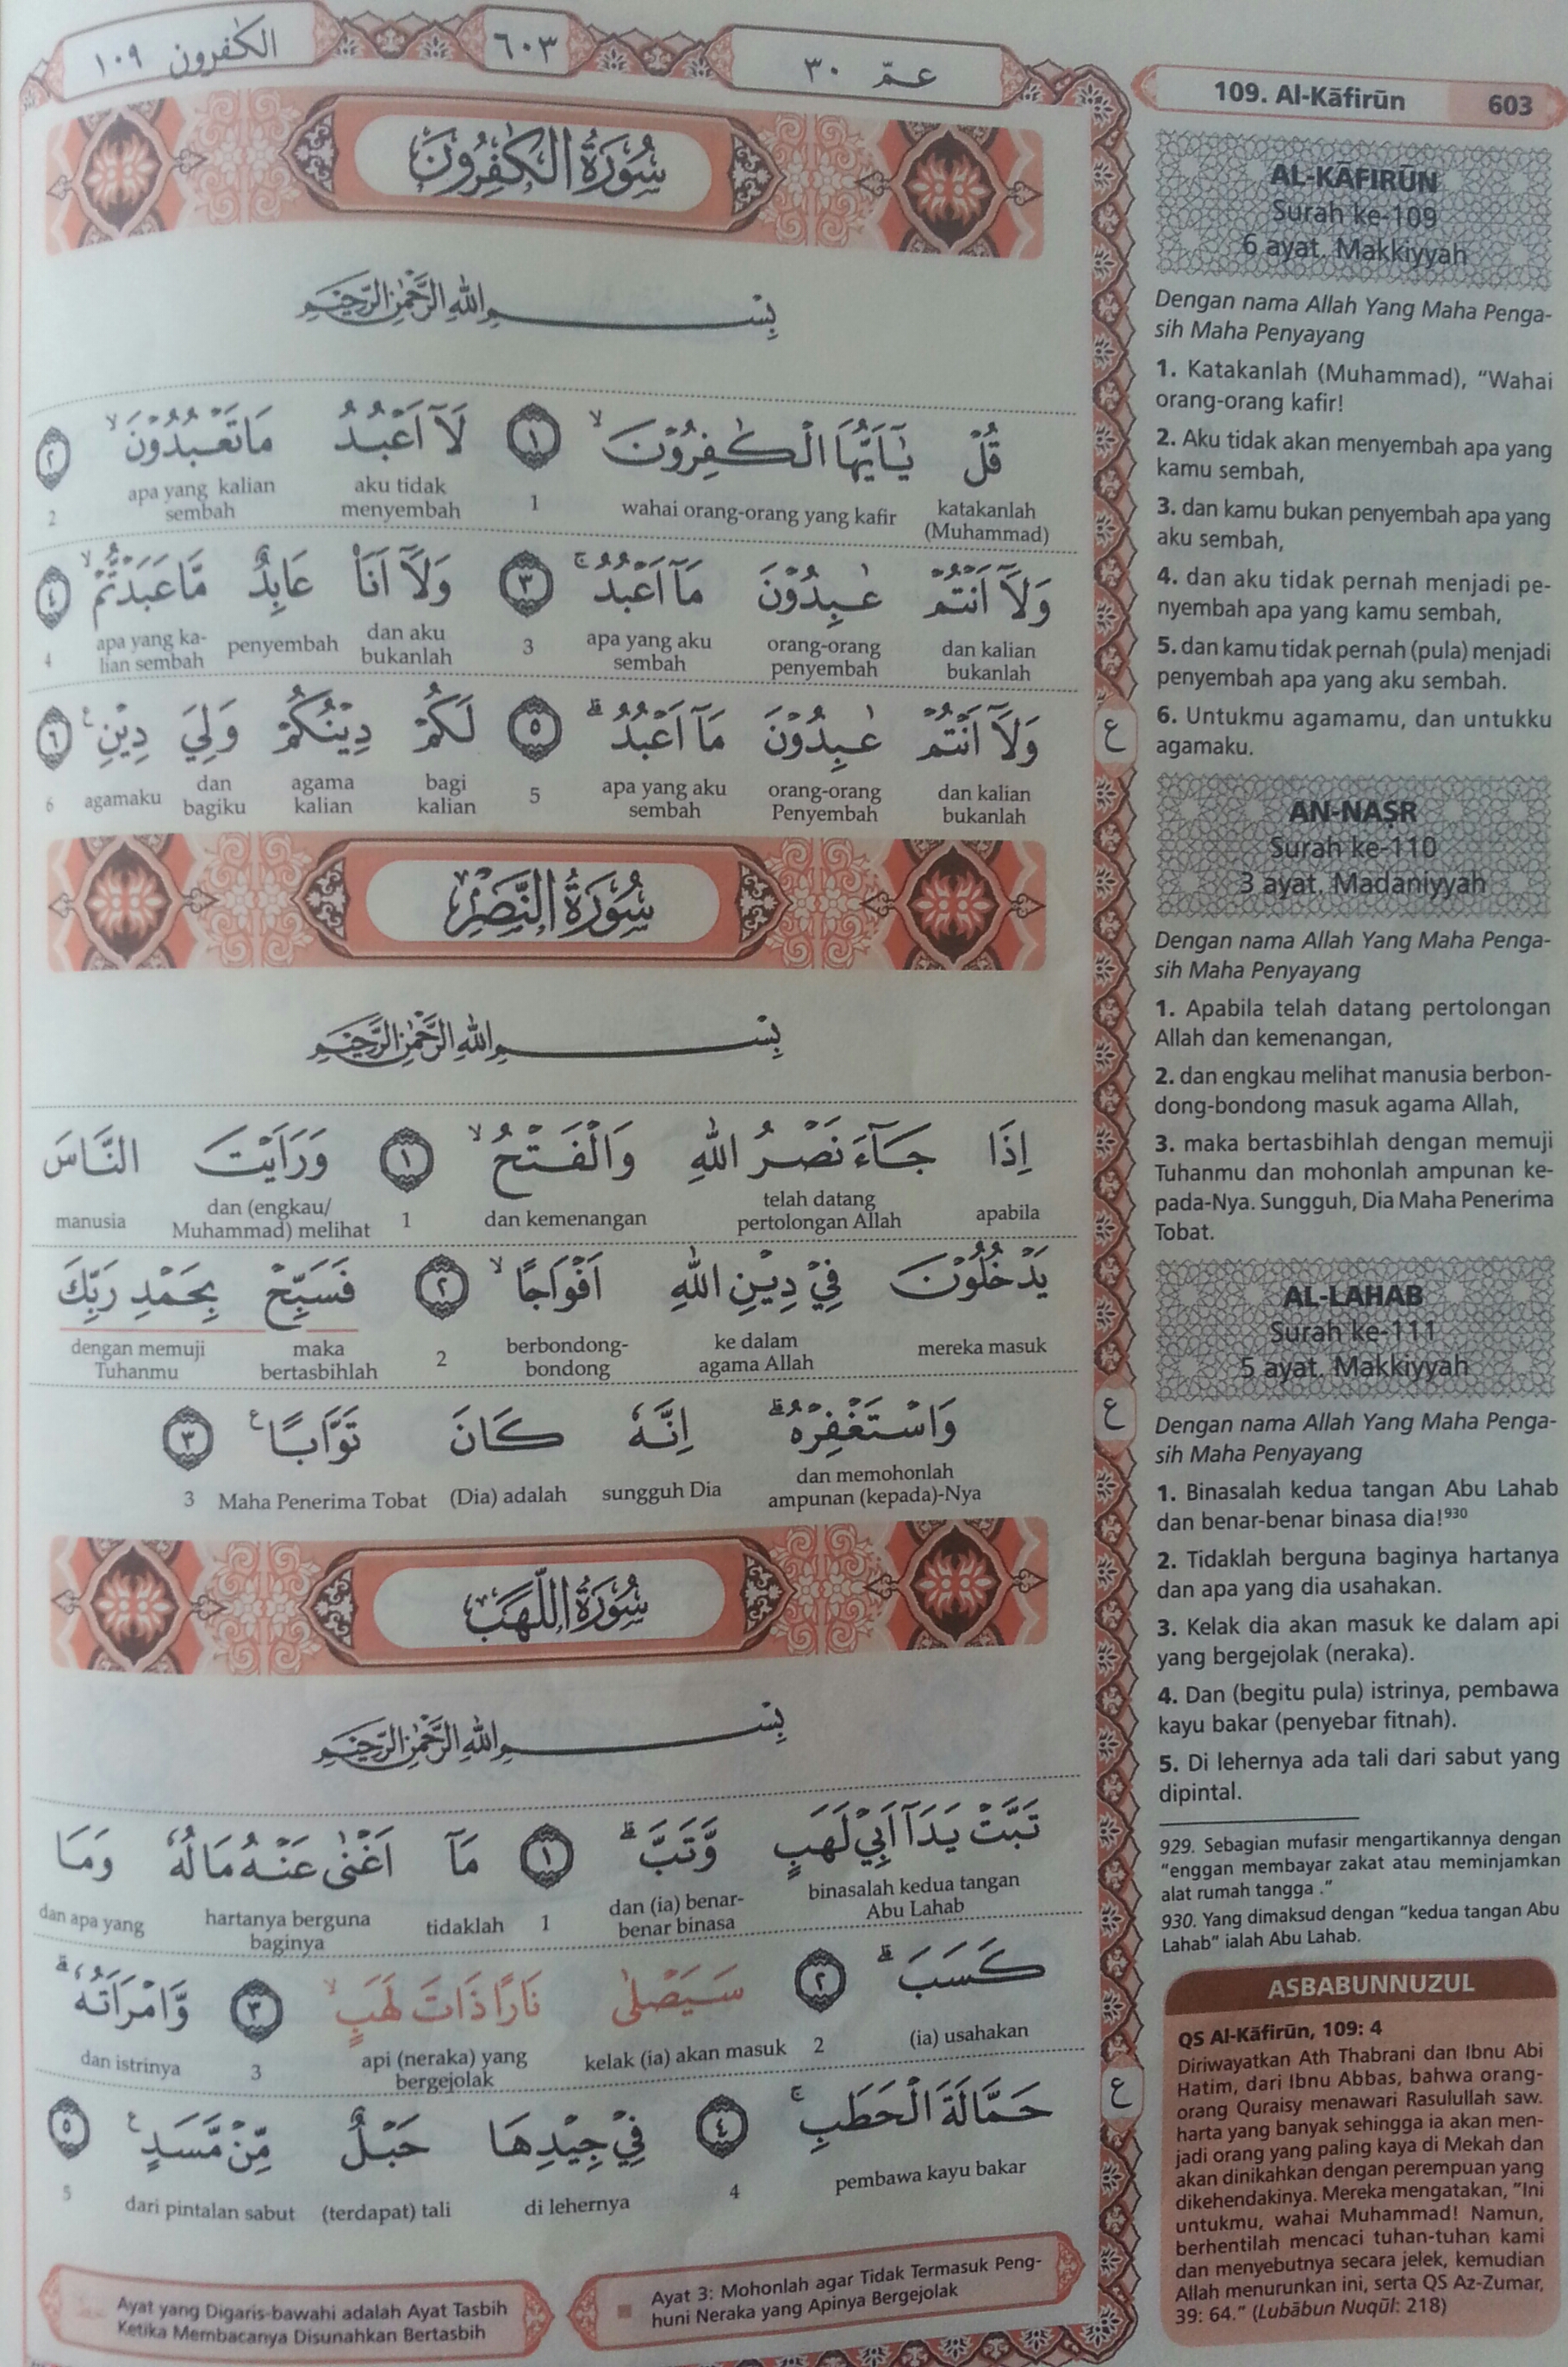 الكٰفرون ١٠٩
٦٠٣
عمّ ٣٠
سُوْرَةُ الْكٰفِرُوْنَ
بِسْمِ اللّٰهِ الرَّحْمٰنِ الرَّحِيْمِ
قُلْ يٰٓاَيُّهَا الْكٰفِرُوْنَۙ ١ لَآ اَعْبُدُ مَا تَعْبُدُوْنَۙ ٢
katakanlah (Muhammad) wahai orang-orang yang kafir 1 aku tidak menyembah apa yang kalian sembah 2
وَلَآ اَنْتُمْ عٰبِدُوْنَ مَآ اَعْبُدُۚ ٣ وَلَآ اَنَا۠ عَابِدٌ مَّا عَبَدْتُّمْۙ ٤
dan kalian bukanlah orang-orang penyembah apa yang aku sembah 3 dan aku bukanlah penyembah apa yang ka-lian sembah 4
وَلَآ اَنْتُمْ عٰبِدُوْنَ مَآ اَعْبُدُۗ ٥ لَكُمْ دِيْنُكُمْ وَلِيَ دِيْنِࣖ ٦
dan kalian bukanlah orang-orang Penyembah apa yang aku sembah 5 bagi kalian agama kalian dan bagiku agamaku 6
ع
سُوْرَةُ النَّصْرِ
بِسْمِ اللّٰهِ الرَّحْمٰنِ الرَّحِيْمِ
اِذَا جَاۤءَ نَصْرُ اللّٰهِ وَالْفَتْحُۙ ١ وَرَاَيْتَ النَّاسَ
apabila telah datang pertolongan Allah dan kemenangan 1 dan (engkau/ Muhammad) melihat manusia
يَدْخُلُوْنَ فِيْ دِيْنِ اللّٰهِ اَفْوَاجًاۙ ٢ فَسَبِّحْ بِحَمْدِ رَبِّكَ
mereka masuk ke dalam agama Allah berbondong-bondong 2 maka bertasbihlah dengan memuji Tuhanmu
وَاسْتَغْفِرْهُۗ اِنَّهٗ كَانَ تَوَّابًاࣖ ٣
dan memohonlah ampunan (kepada)-Nya sungguh Dia (Dia) adalah Maha Penerima Tobat 3
ع
سُوْرَةُ اللَّهَبِ
بِسْمِ اللّٰهِ الرَّحْمٰنِ الرَّحِيْمِ
تَبَّتْ يَدَآ اَبِيْ لَهَبٍ وَّتَبَّۗ ١ مَآ اَغْنٰى عَنْهُ مَالُهٗ وَمَا
binasalah kedua tangan Abu Lahab dan (ia) benar-benar binasa 1 tidaklah hartanya berguna baginya dan apa yang
كَسَبَۗ ٢ سَيَصْلٰى نَارًا ذَاتَ لَهَبٍۙ ٣ وَّامْرَاَتُهٗۗ
(ia) usahakan 2 kelak (ia) akan masuk api (neraka) yang bergejolak 3 dan istrinya
حَمَّالَةَ الْحَطَبِۚ ٤ فِيْ جِيْدِهَا حَبْلٌ مِّنْ مَّسَدٍࣖ ٥
pembawa kayu bakar 4 di lehernya (terdapat) tali dari pintalan sabut 5
ع
Ayat yang Digaris-bawahi adalah Ayat Tasbih
Ketika Membacanya Disunahkan Bertasbih
Ayat 3: Mohonlah agar Tidak Termasuk Peng-
huni Neraka yang Apinya Bergejolak
109. Al-Kāfirūn 603
AL-KĀFIRŪN
Surah ke-109
6 ayat. Makkiyyah
Dengan nama Allah Yang Maha Penga-
sih Maha Penyayang
1. Katakanlah (Muhammad), “Wahai
orang-orang kafir!
2. Aku tidak akan menyembah apa yang
kamu sembah,
3. dan kamu bukan penyembah apa yang
aku sembah,
4. dan aku tidak pernah menjadi pe-
nyembah apa yang kamu sembah,
5. dan kamu tidak pernah (pula) menjadi
penyembah apa yang aku sembah.
6. Untukmu agamamu, dan untukku
agamaku.
AN-NAṢR
Surah ke-110
3 ayat. Madaniyyah
Dengan nama Allah Yang Maha Penga-
sih Maha Penyayang
1. Apabila telah datang pertolongan
Allah dan kemenangan,
2. dan engkau melihat manusia berbon-
dong-bondong masuk agama Allah,
3. maka bertasbihlah dengan memuji
Tuhanmu dan mohonlah ampunan ke-
pada-Nya. Sungguh, Dia Maha Penerima
Tobat.
AL-LAHAB
Surah ke-111
5 ayat. Makkiyyah
Dengan nama Allah Yang Maha Penga-
sih Maha Penyayang
1. Binasalah kedua tangan Abu Lahab
dan benar-benar binasa dia!⁹³⁰
2. Tidaklah berguna baginya hartanya
dan apa yang dia usahakan.
3. Kelak dia akan masuk ke dalam api
yang bergejolak (neraka).
4. Dan (begitu pula) istrinya, pembawa
kayu bakar (penyebar fitnah).
5. Di lehernya ada tali dari sabut yang
dipintal.
929. Sebagian mufasir mengartikannya dengan
“enggan membayar zakat atau meminjamkan
alat rumah tangga .”
930. Yang dimaksud dengan “kedua tangan Abu
Lahab” ialah Abu Lahab.
ASBABUNNUZUL
QS Al-Kāfirūn, 109: 4
Diriwayatkan Ath Thabrani dan Ibnu Abi
Hatim, dari Ibnu Abbas, bahwa orang-
orang Quraisy menawari Rasulullah saw.
harta yang banyak sehingga ia akan men-
jadi orang yang paling kaya di Mekah dan
akan dinikahkan dengan perempuan yang
dikehendakinya. Mereka mengatakan, “Ini
untukmu, wahai Muhammad! Namun,
berhentilah mencaci tuhan-tuhan kami
dan menyebutnya secara jelek, kemudian
Allah menurunkan ini, serta QS Az-Zumar,
39: 64.” (Lubābun Nuqūl: 218)